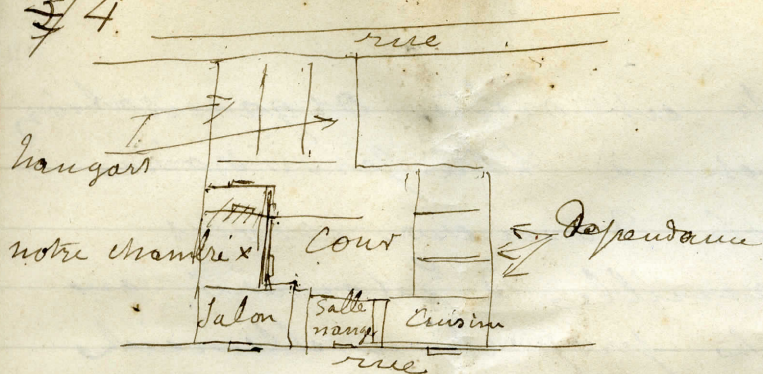 4
rue
hangars
notre chambre x
Cour
Dépendance
Salon
Salle
mang
Cuisine
rue